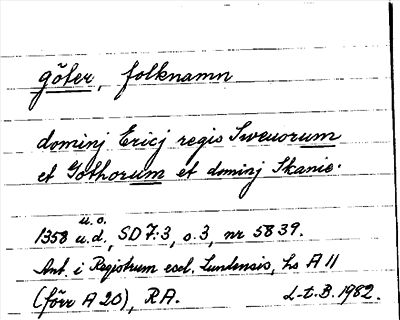 göter, folknamn
dominj Ericj regis Sweuorum
et Gothorum et dominj Skanie.
u.o.
1358 u.d., SD 7:3, s. 3, nr 5839.
Ant. i Registrum eccl. Lundensis, hs A 11
(förr A 20), RA. L-t.B. 1982.